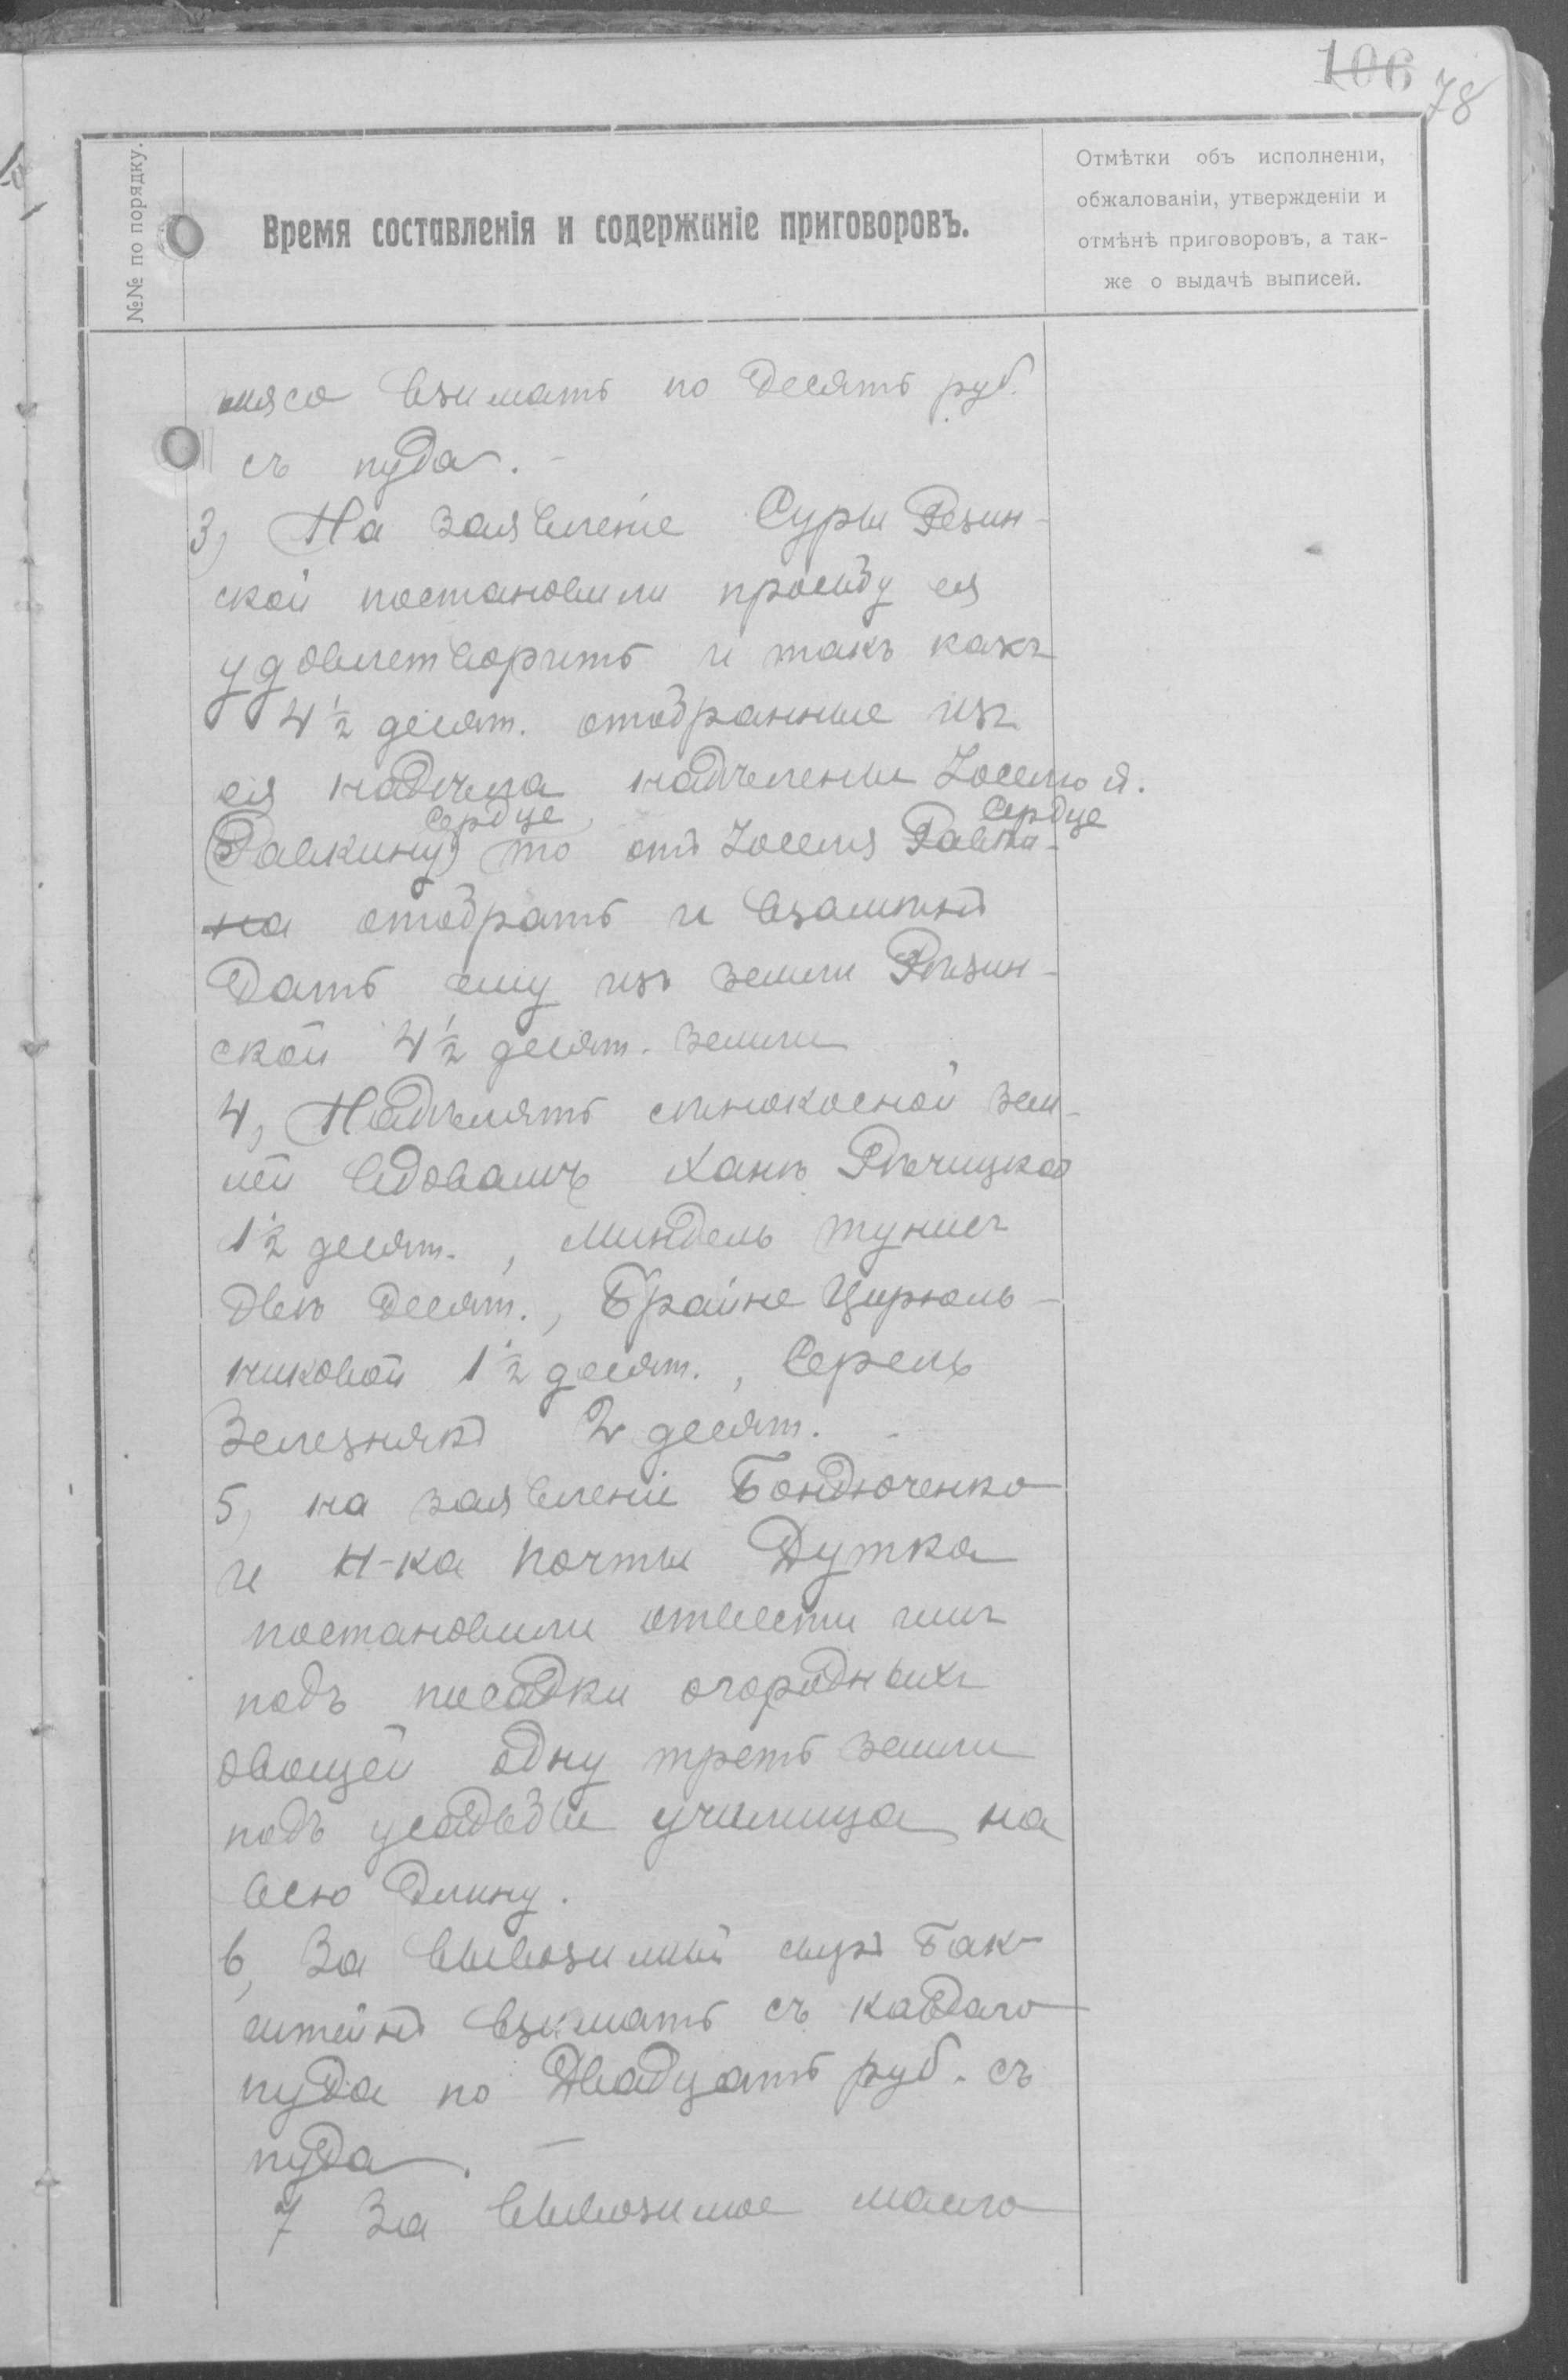 106
78
№№ по порядку.
Время составленія и содержаніе приговоровъ.
Отмѣтки объ исполненіи,
обжалованіи, утвержденіи и
отмѣнѣ приговоровъ, а так-
же о выдачѣ выписей.
мясо взимать по десять руб.
съ пуда. -
3, На заявленіе Суры Резин-
ской постановили просьбу ея
удовлетворить и такъ какъ
4½ десят. отобранные изъ
ея надѣла надѣлены Іоселю Я.
Сердце Сердце
(Равкину) то отъ Іоселя Равки-
на отобрать и взаменъ
дать ему изъ земли Рѣзин-
ской 4½ десят. земли
4, Надѣлять сѣнокосной зем-
лей вдовамъ Ханѣ Рѣчицкой
1½ десят., Миндель Тунисъ
двѣ десят., Брайне Цирюль-
никовой 1½ десят., Серель
Зелезнякъ 2 десят.
5, на заявленіе Бондюченко
и Н-ка почты Дутка
постановили отвести имъ
подъ посадки огородныхъ
овощей одну треть земли
подъ усадьбы училища на
всю длину.
6, За вывозимый сыръ Бак-
штейнъ взимать съ каждаго
пуда по Двадцать руб. съ
пуда. —
7 За вывозимое масло